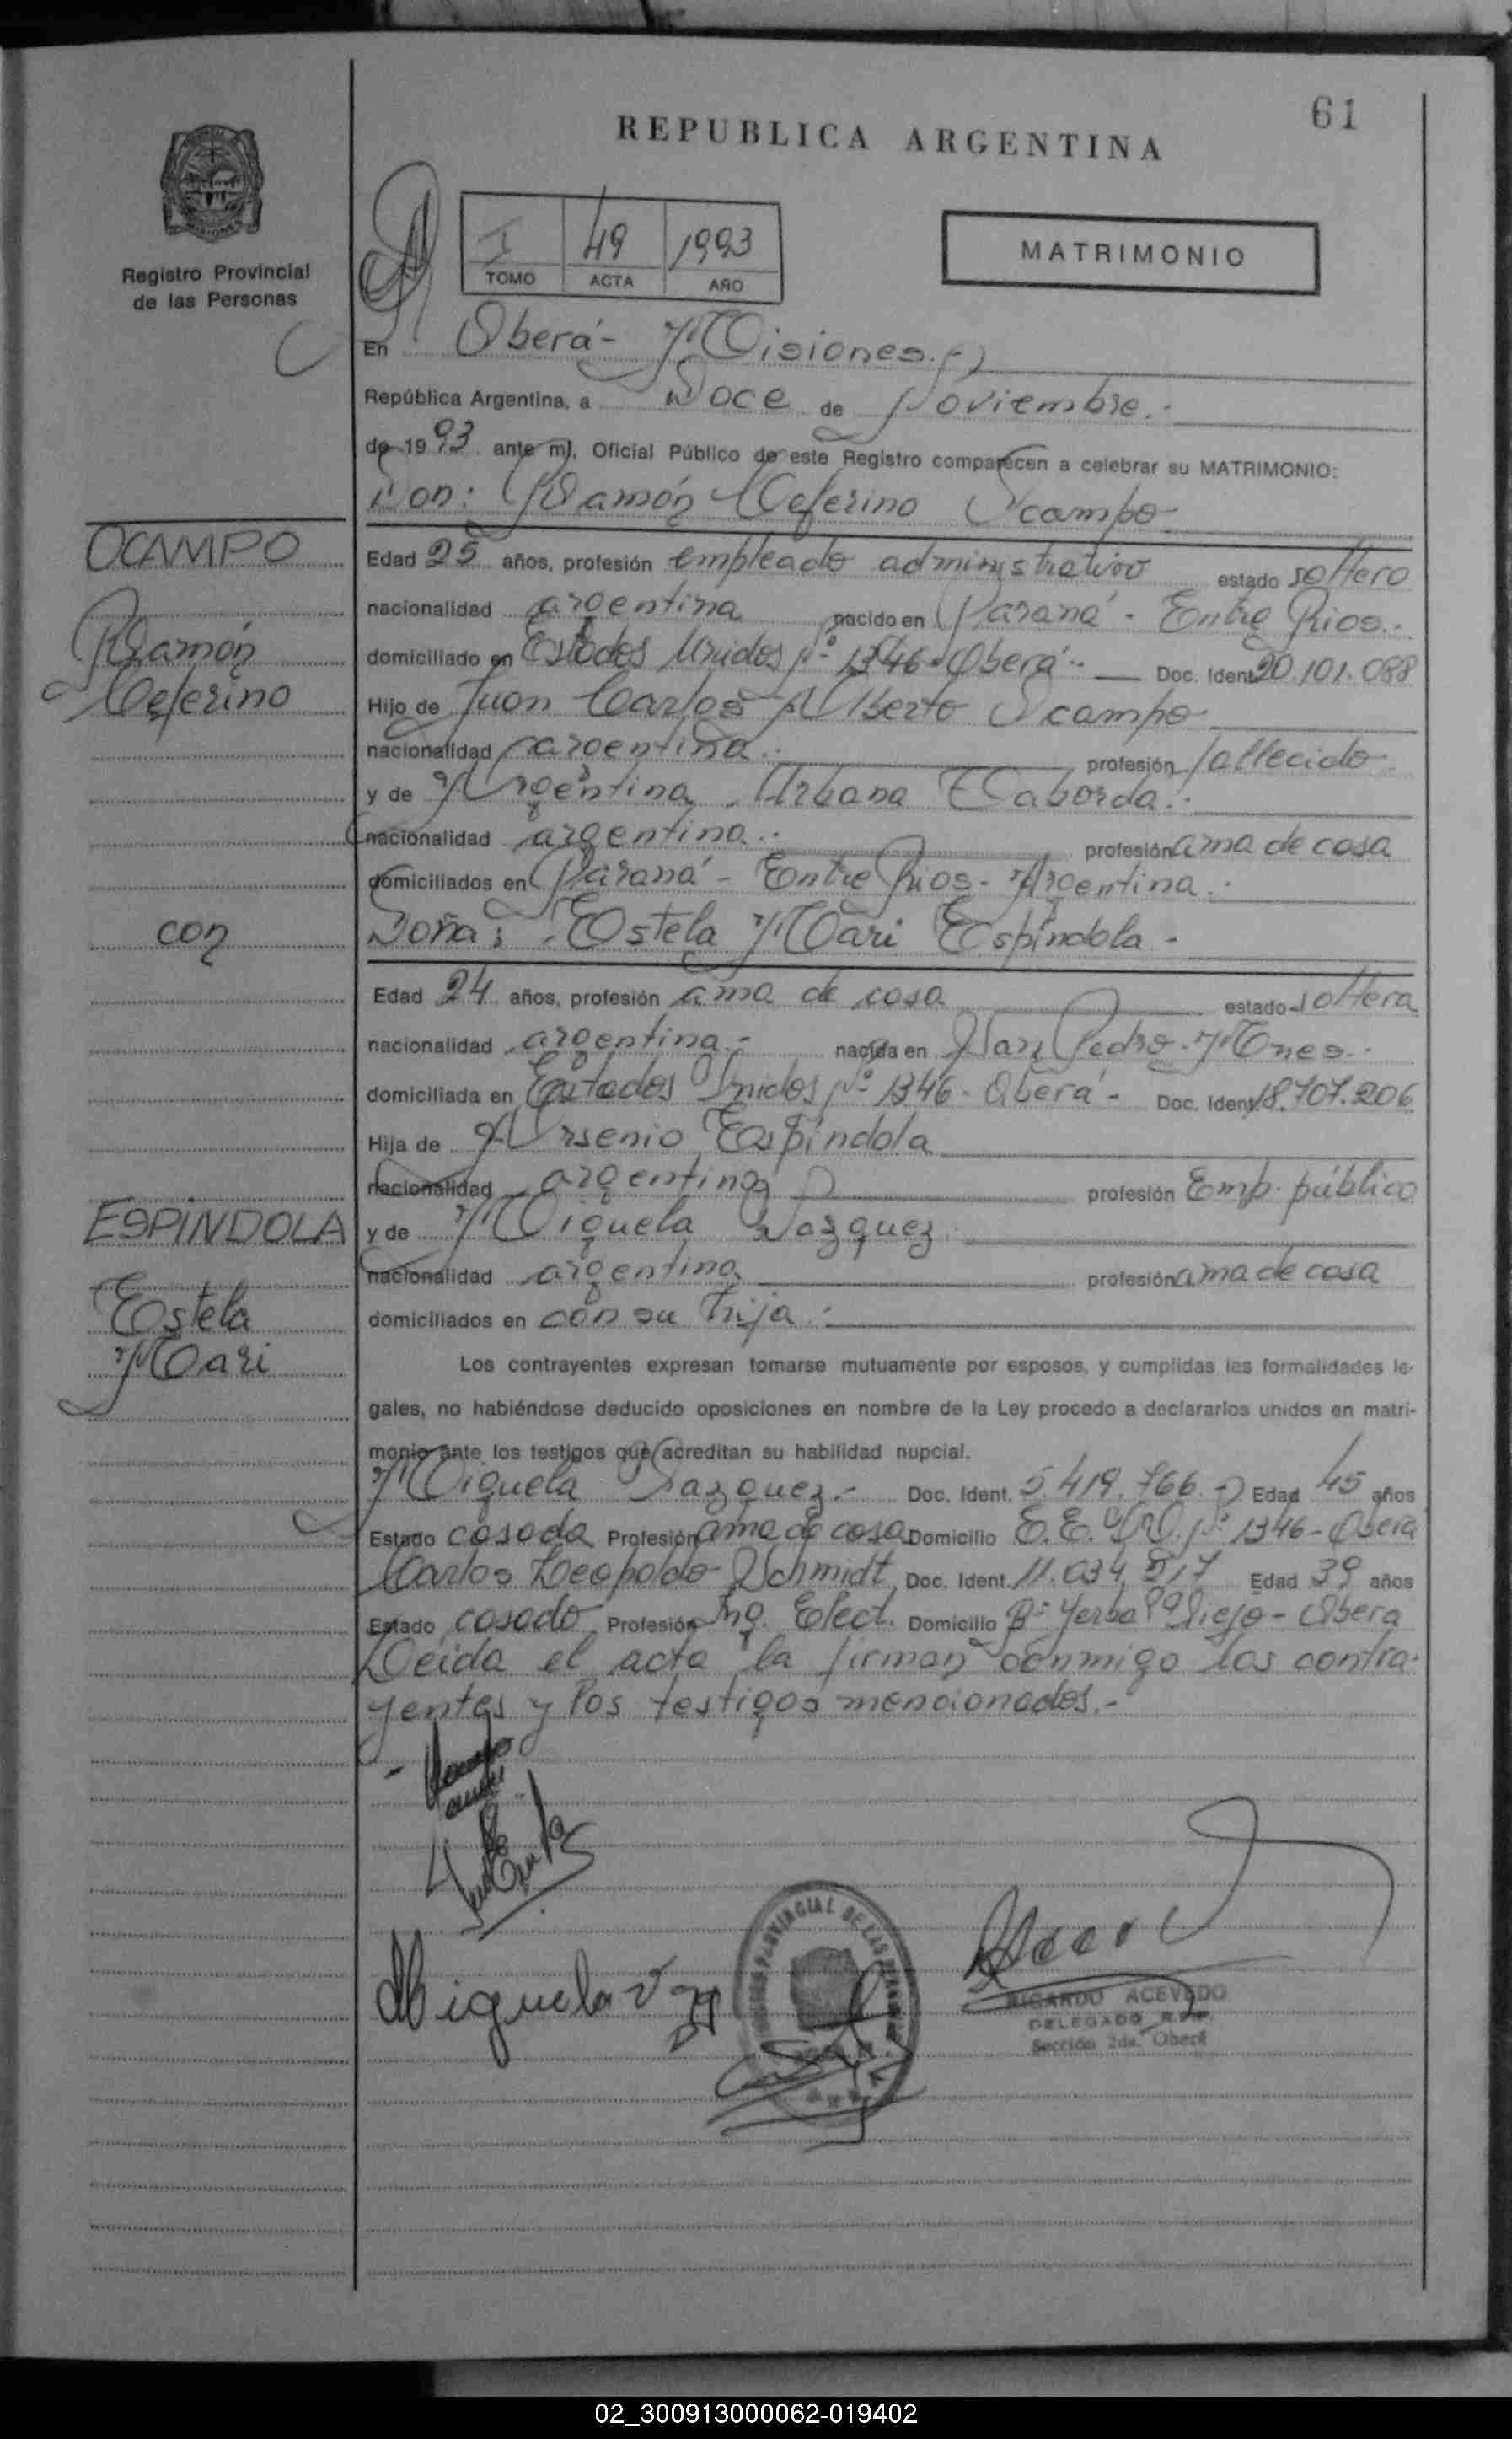 61
REPUBLICA ARGENTINA
Registro Provincial
de las Personas
I 49 1993
TOMO ACTA AÑO
MATRIMONIO
En Oberá - Misiones.-
República Argentina, a Doce de Noviembre.-
de 19 93 ante mí, Oficial Público de este Registro comparecen a celebrar su MATRIMONIO:
Don: Ramón Ceferino Ocampo
OCAMPO
Ramón
Ceferino
Edad 25 años, profesión empleado administrativo estado soltero
nacionalidad argentina nacido en Paraná - Entre Rios.-
domiciliado en Estados Unidos Nº 1346 - Oberá - Doc. Ident. 20.101.088
Hijo de Juan Carlos Alberto Ocampo
nacionalidad argentina.- profesión fallecido
y de Argentina Urbana Taborda.-
nacionalidad argentina.- profesión ama de casa
domiciliados en Paraná - Entre Rios - Argentina.-
con
Doña: Estela Mari Espíndola -
Edad 24 años, profesión ama de casa estado soltera
nacionalidad argentina.- nacida en San Pedro - Mnes.-
domiciliada en Estados Unidos Nº 1346 - Oberá - Doc. Ident. 18.707.206
Hija de Arsenio Espíndola
nacionalidad argentina profesión Emp. público
ESPINDOLA
Estela
Mari
y de Miguela Vazquez
nacionalidad argentina profesión ama de casa
domiciliados en con su hija.-
Los contrayentes expresan tomarse mutuamente por esposos, y cumplidas las formalidades le-
gales, no habiéndose deducido oposiciones en nombre de la Ley procedo a declararlos unidos en matri-
monio ante los testigos que acreditan su habilidad nupcial.
Miguela Vazquez.- Doc. Ident. 5.419.766.- Edad 45 años
Estado casada Profesión ama de casa Domicilio E.E.U.U. Nº 1346 - Oberá
Carlos Leopoldo Schmidt Doc. Ident. 11.034.517 Edad 39 años
Estado casado Profesión Ing. Elect. Domicilio Bº Yerbal Viejo - Oberá
Leida el acta la firman conmigo los contra-
yentes y los testigos mencionados.-
Miguela
PROVINCIAL DE LAS
RICARDO ACEVEDO
DELEGADO R.P.P.
Sección 2da. Oberá
02_300913000062-019402